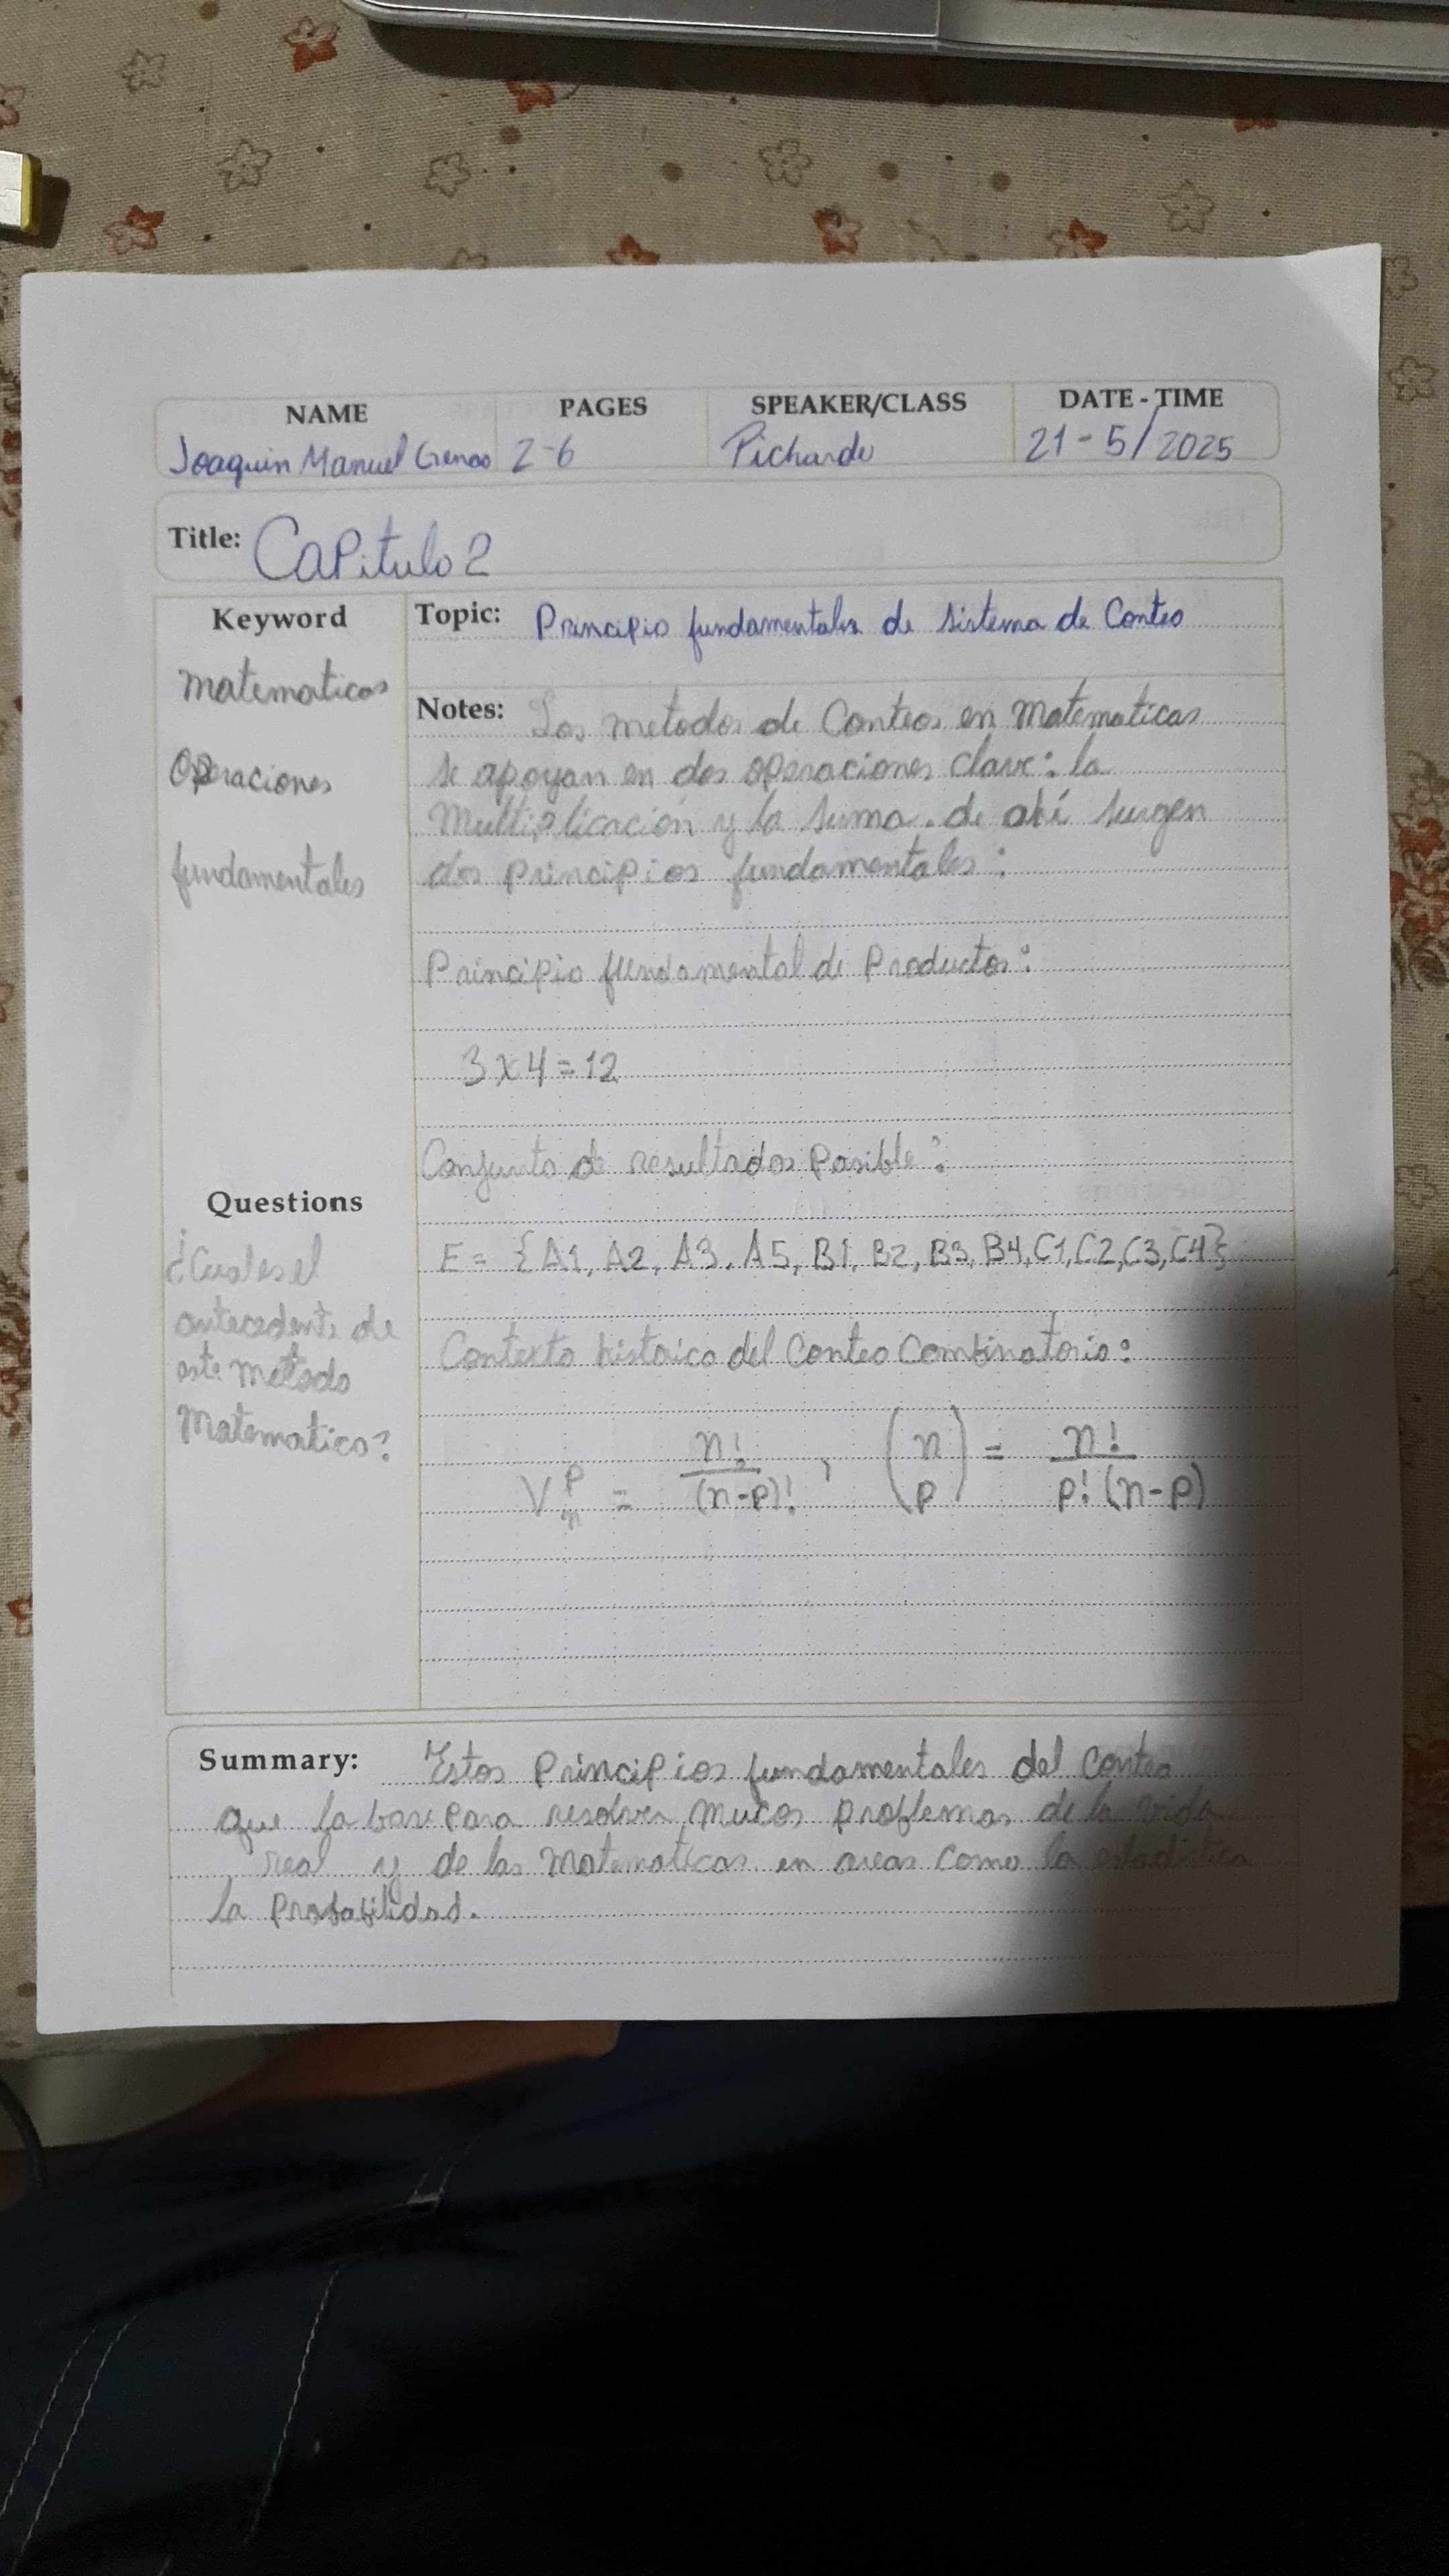 NAME PAGES SPEAKER/CLASS DATE - TIME
Joaquin Manuel 2-6 Pichardo 21-5/2025
Title: Capitulo 2
Keyword
Matematicas
Operaciones
fundamentales
Questions
¿Cual es el
antecedente de
este Metodo
Matematico?
Topic: Principio fundamentales de sistema de Conteo
Notes: Los metodos de Conteos en Matematicas
se apoyan en dos operaciones clave: la
Multiplicación y la suma. de ahí surgen
dos principios fundamentales:
Principio fundamental de Productos:
3 x 4 = 12
Conjunto de resultados Posible:
E = {A1, A2, A3, A5, B1, B2, B3, B4, C1, C2, C3, C4}
Contexto histrico del Conteo Combinatorio:
V_n^p = n!/(n-p)! , (n p) = n!/p!(n-p)
Summary: Estos Principios fundamentales del Conteo
que la base para resolver mucos problemas de la vida
real y de las Matematicas en areas como la estadistica
la Probabilidad.